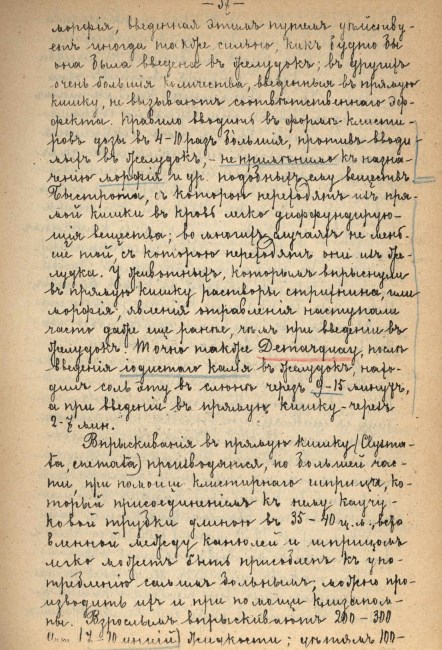 - 34 -
морфія, введенная этимъ путемъ дѣйству-
етъ иногда также сильно, какъ будто бы
она была введена въ желудокъ; въ другихъ
очень большія количества, введенныя въ прямую
кишку, не вызываютъ соотвѣтственнаго эф-
фекта. Правило вводить въ формѣ клисти-
ровъ дозы въ 4-10 разъ большія, противъ вводи
мыхъ въ желудокъ, - не примѣнимо къ назна-
ченію морфія и др. подобныхъ ему веществъ
Быстрота, съ которой переходятъ изъ пря-
мой кишки въ кровь легко диффундирую-
щія вещества; во многихъ случаяхъ не мень-
ше той, съ которою переходятъ они изъ же-
лудка. У животныхъ, которымъ впрыснули
въ прямую кишку растворы стрихнина, или
морфія, явленія отравленія наступали
часто даже еще раньше, чѣмъ при введеніи въ
желудокъ! Точно также Demarquay, послѣ
введенія іодистаго калія въ желудокъ, нахо-
дилъ соль эту въ слюнѣ черезъ 9-15 минутъ,
а при введеніи въ прямую кишку - черезъ
2-7 мин.
Впрыскиванія въ прямую кишку (Clysma-
ta, enemata) производятся, по большей час-
ти, при помощи клистирнаго шприца, ко-
торый присоединеніемъ къ нему каучу-
ковой трубки длиною въ 35-40 ц.м., вста
вленной между канюлей и шприцомъ
легко можетъ быть приспобленъ къ упо-
требленію самимъ больнымъ; можно про-
изводить ихъ и при помощи клизопом-
пы. Взрослымъ впрыскиваютъ 200-300
(7-10 унцій) жидкости; дѣтямъ 100-